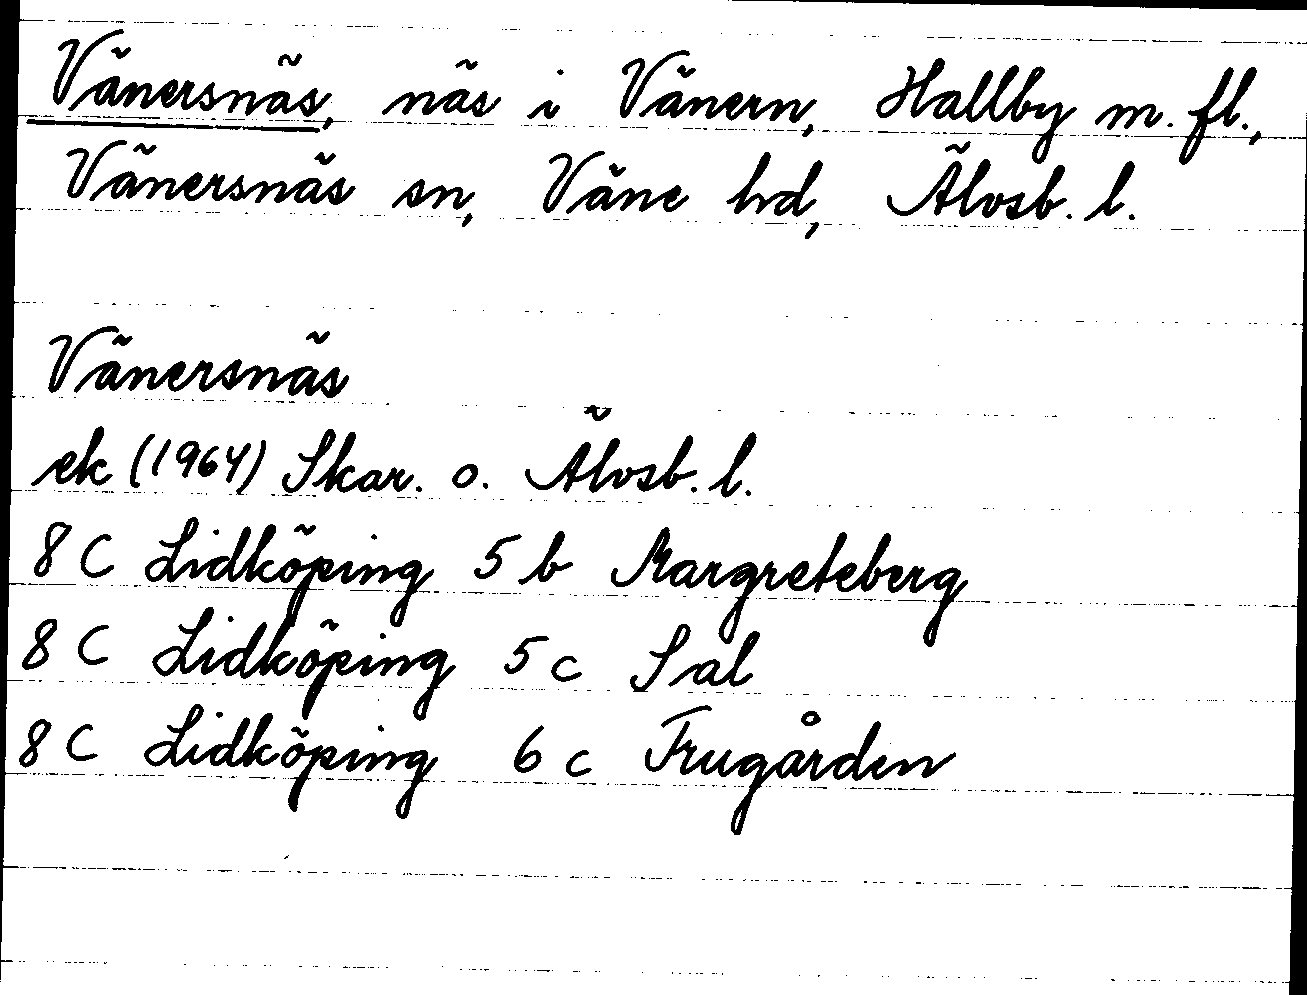 Vänersnäs, näs i Vänern, Hallby m. fl.,
Vänersnäs sn, Väne hd, Älvsb. l.
Vänersnäs
ek (1964) Skar. o. Älvsb. l.
8 C Lidköping 5 b Margreteberg
8 C Lidköping 5 c Sal
8 C Lidköping 6 c Frugården